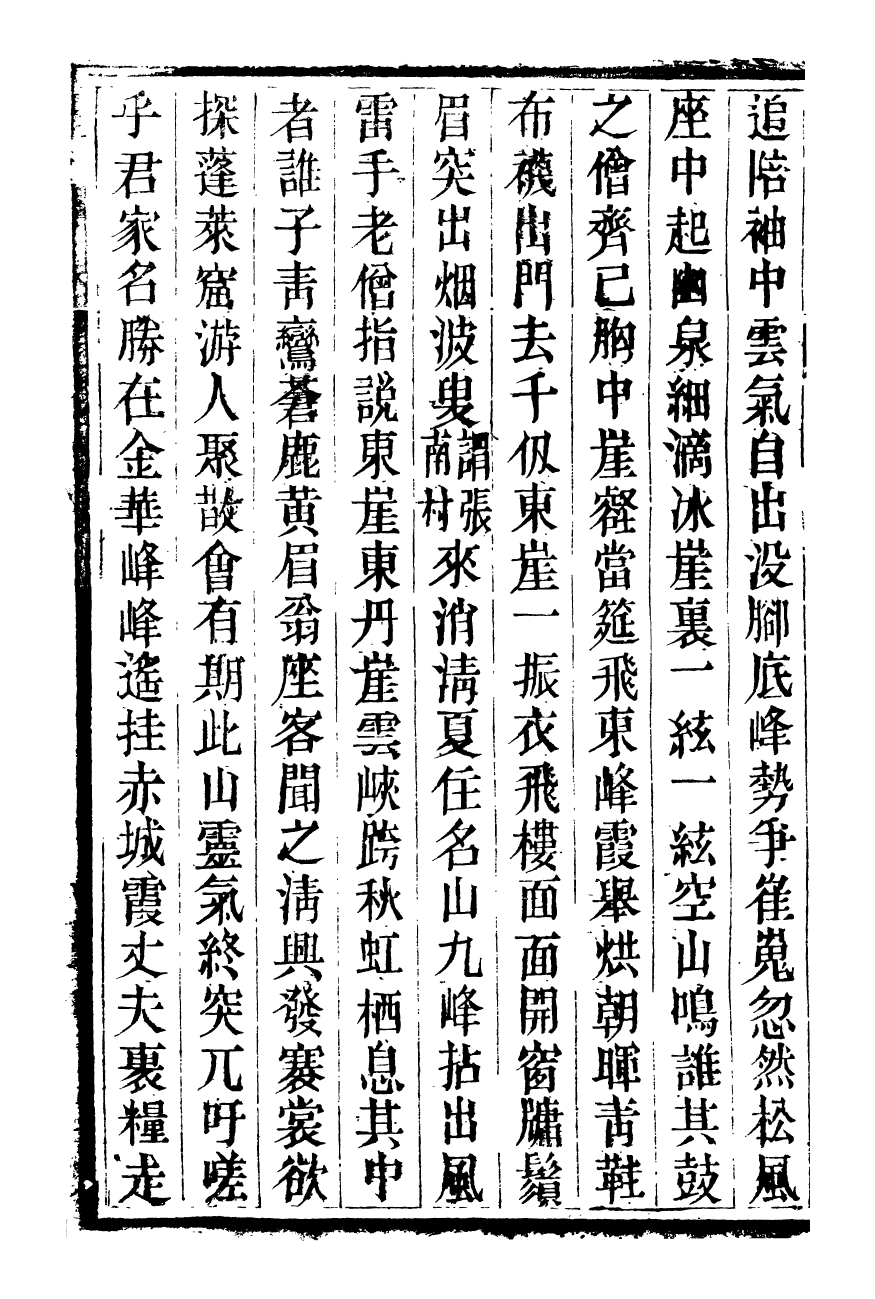 追陪袖中雲氣自出没腳底峰勢爭崔嵬忽然松風
座中起幽泉細滴冰崖裏一絃一絃空山鳴誰其鼓
之僧齊已胸中崖壑當筵飛東峰霞舉烘朝暉青鞋
布襪出門去千仭東崖一振衣飛樓面面開窗牗鬚
眉突出烟波叟謂張南村來消淸夏住名山九峰拈出風
雷手老僧指説東崖東丹崖雲峽跨秋虹栖息其中
者誰子青鸞蒼鹿黄眉翁座客聞之淸興發褰裳欲
探蓬萊窟游人聚散會有期此山靈氣終突兀吁嗟
乎君家名勝在金華峰峰遙挂赤城霞丈夫裹糧走